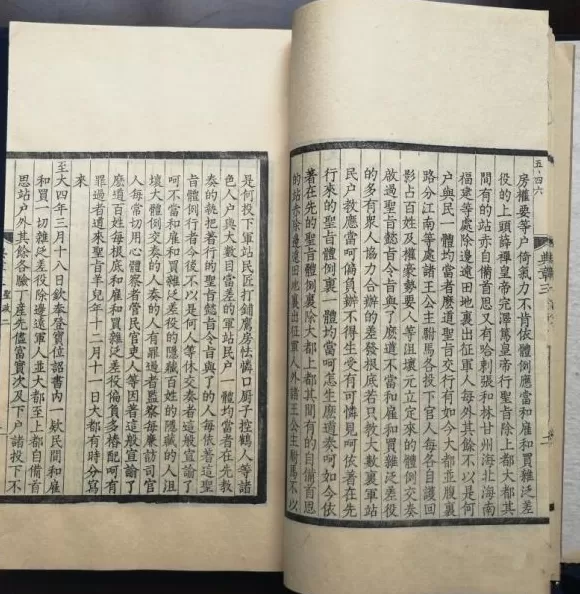 五、四六
典章三
房攉要等戶倚氣力不肯依體例應當和雇和買雜泛差
役的上頭薛禪皇帝完澤篤皇帝行聖旨除上都大都其
間有的站亦自備首思又有哈剌張和林甘州海北海南
福建等處除邊遠田地裏出征軍人每外其餘不以是何
戶與民一體均當者麽道聖旨交行有如今大都並腹裏
路分江南等處諸王公主駙馬各投下官人每各自護回
影占百姓及權豪勢要人等沮壞元立定來的體例交奏
啟過聖旨懿旨令旨與了麽道不當和雇和買雜泛差役
的多有衆人協力合辦的差發根底若只教大數裏軍站
民户教應當呵偏負不得生受有可憐見呵依著在先
行來的聖旨體例裏一體均當呵怎生麽道奏呵如今依
著在先的聖旨體例裏除大都上都其間有的自備首思
的站亦除邊遠田地裏出征軍人外諸王公主駙馬不以
是何投下軍站民匠打鋪鷹房怯憐口厨子控鶴人等諸
色人户與大數目當差的軍站民户一體均當者在先教
奏的執把着行的聖旨懿旨令旨與了的人每依着這聖
旨體例行者今後不以是何人等休交奏者這般宣諭了
呵不當和雇和買雜泛差役的隱藏百姓的隱藏的人沮
壞大體例交奏的人奏的人有罪過者監察每廉訪司官
人每常切用心體察者管民官吏人等因著這般宣諭了
麽道百姓每根底和雇和買雜泛差役偏負多樁配呵有
罪過者道來聖旨羊兒年十二月十一日大都有時分寫
來
至大四年三月十八日欽奉登寶位詔書内一欵民間和雇
和買一切雜泛差役除邊遠軍人並大都至上都自備首
思站户外其餘各驗丁産先儘富實次及下户諸投下不
聖政二